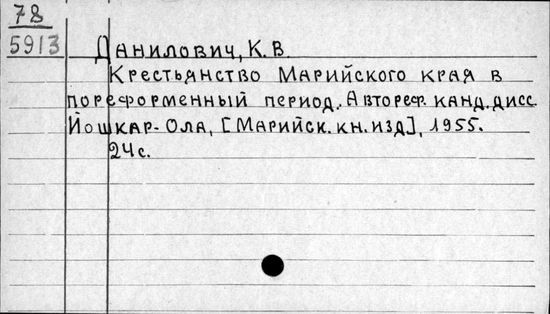 78
5913
Данилович, К. В.
Крестьянство Марийского края в
пореформенный период. Автореф. канд. дисс.
Йошкар-Ола, [Марийск. кн. изд], 1955.
24с.